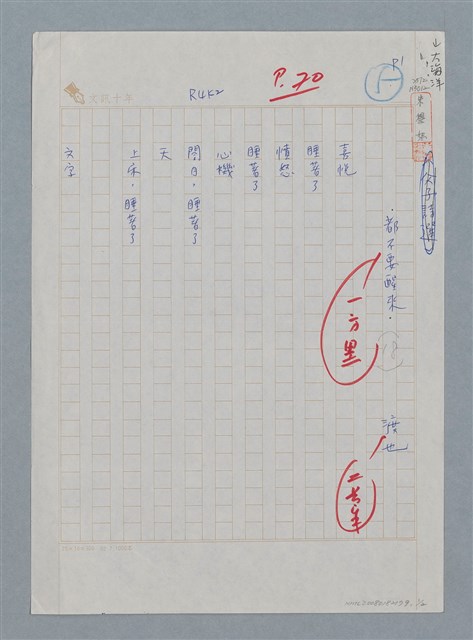 P1
P.70
R4K2
大海洋
·都不要醒來·
一方黑
渡也
喜悅
睡著了
憤怒
睡著了
心機
閉目，睡著了
天
上床，睡著了
文字